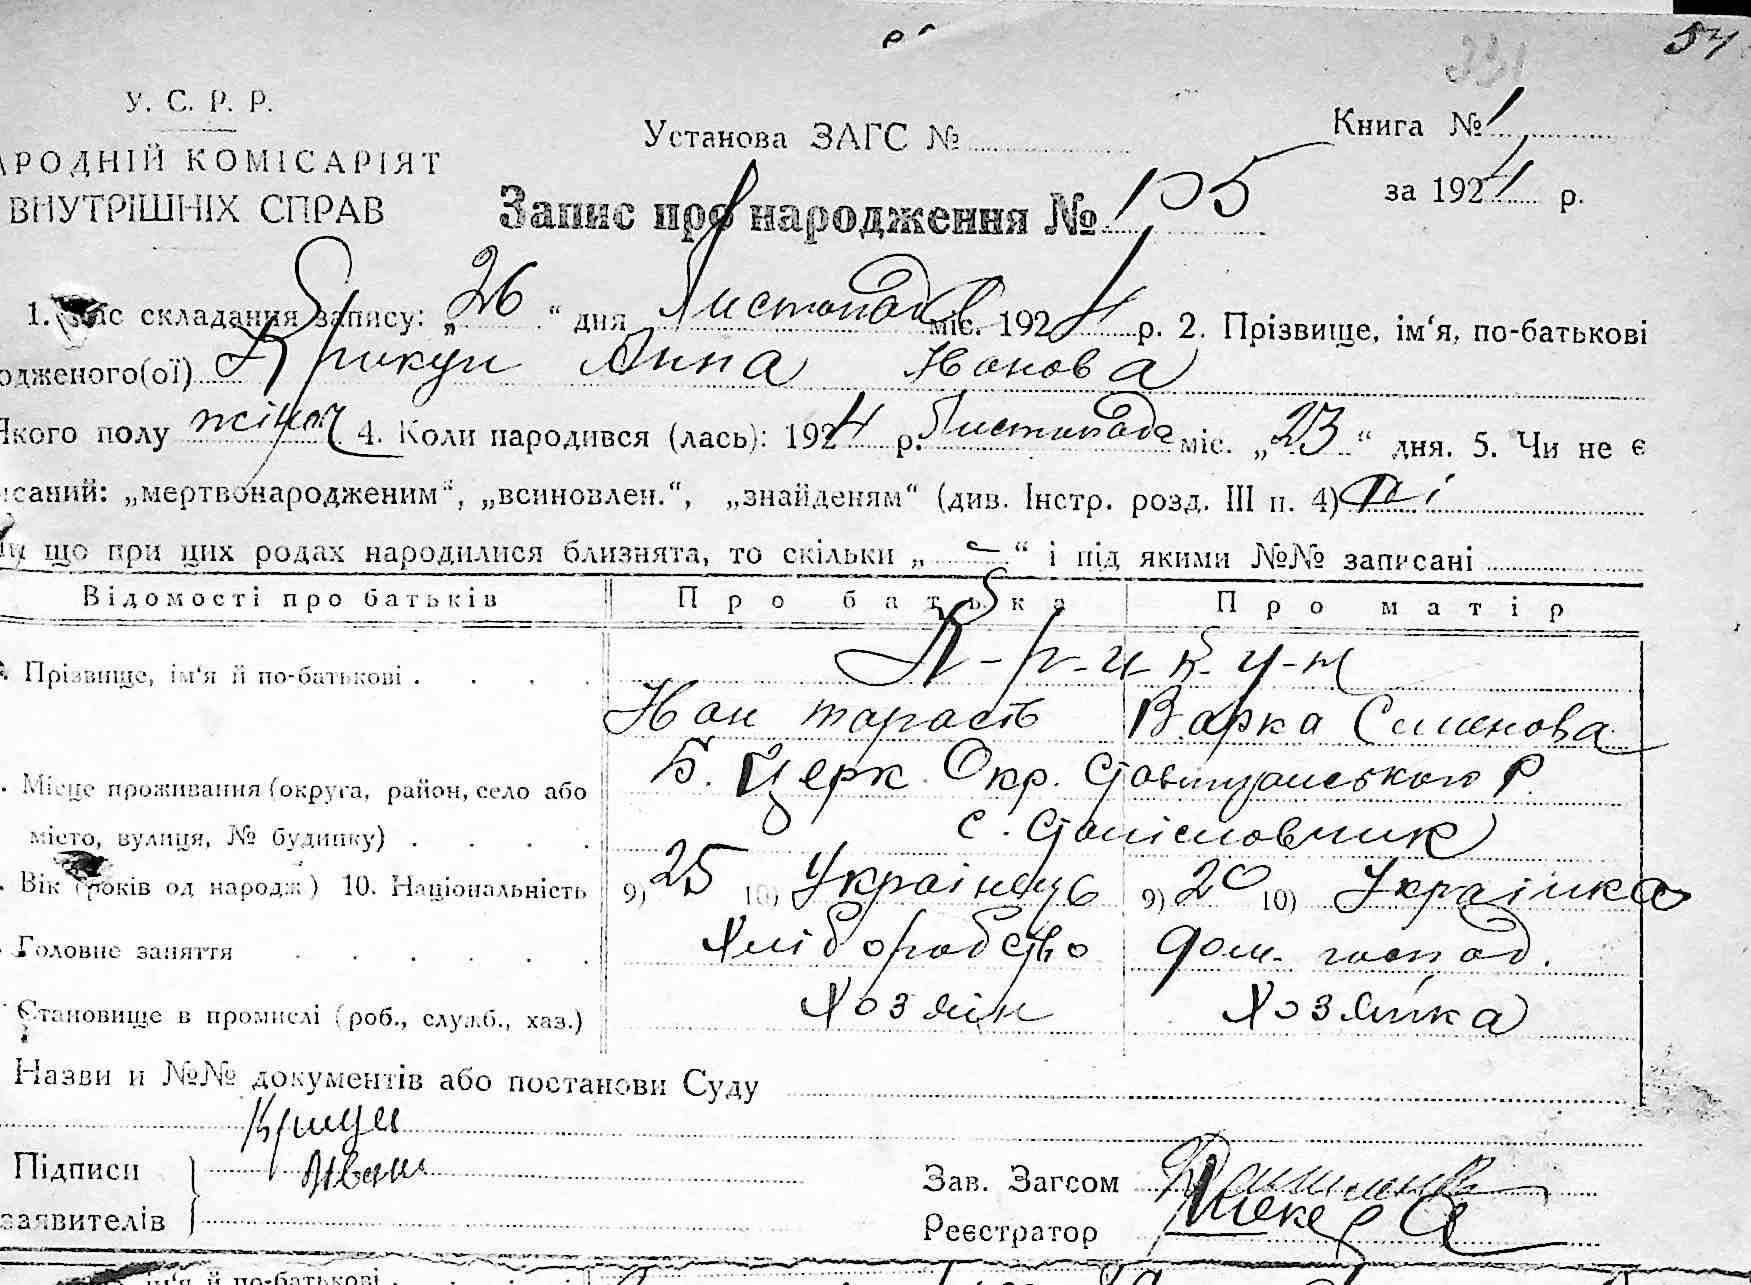 54
331
У. С. Р. Р.
АРОДНІЙ КОМІСАРІЯТ
ВНУТРІШНІХ СПРАВ
Установа ЗАГС №
Книга № 1
за 1924 р.
Запис про народження № 105
1. Час складання запису: „26“ дня Листопада міс. 1924 р. 2. Прізвище, ім‘я, по-батькові
одженого(ої) Крикун Анна Іванова
Якого полу жіноч 4. Коли народився (лась): 1924 р. Листопада міс. „23“ дня. 5. Чи не є
исаний: „мертвонародженим“, „всиновлен.“, „знайденям“ (див. Інстр. розд. III п. 4) ні
що при цих родах народилися близнята, то скільки „ — “ і під якими №№ записані
Відомості про батьків Про батька Про матір
Прізвище, ім‘я й по-батькові . . . . К-р-и-к-у-н
Іван Тарасів Варка Семенова
Місце проживання (округа, район, село або Б. Церк. Окр. Ставищанського Р.
місто, вулиця, № будинку) . . . . с. Станіславчик
Вік (років од народж) 10. Національність 9) 25 10) Українець 9) 20 10) Українка
Головне заняття . . . . . . Хліборобство дом. господ.
Становище в промислі (роб., служб., хаз.) Хозяїн Хозяйка
Назви и №№ документів або постанови Суду
Підписи
Іван
заявителів
Зав. Загсом
Реєстратор
ім‘я й по-батькові